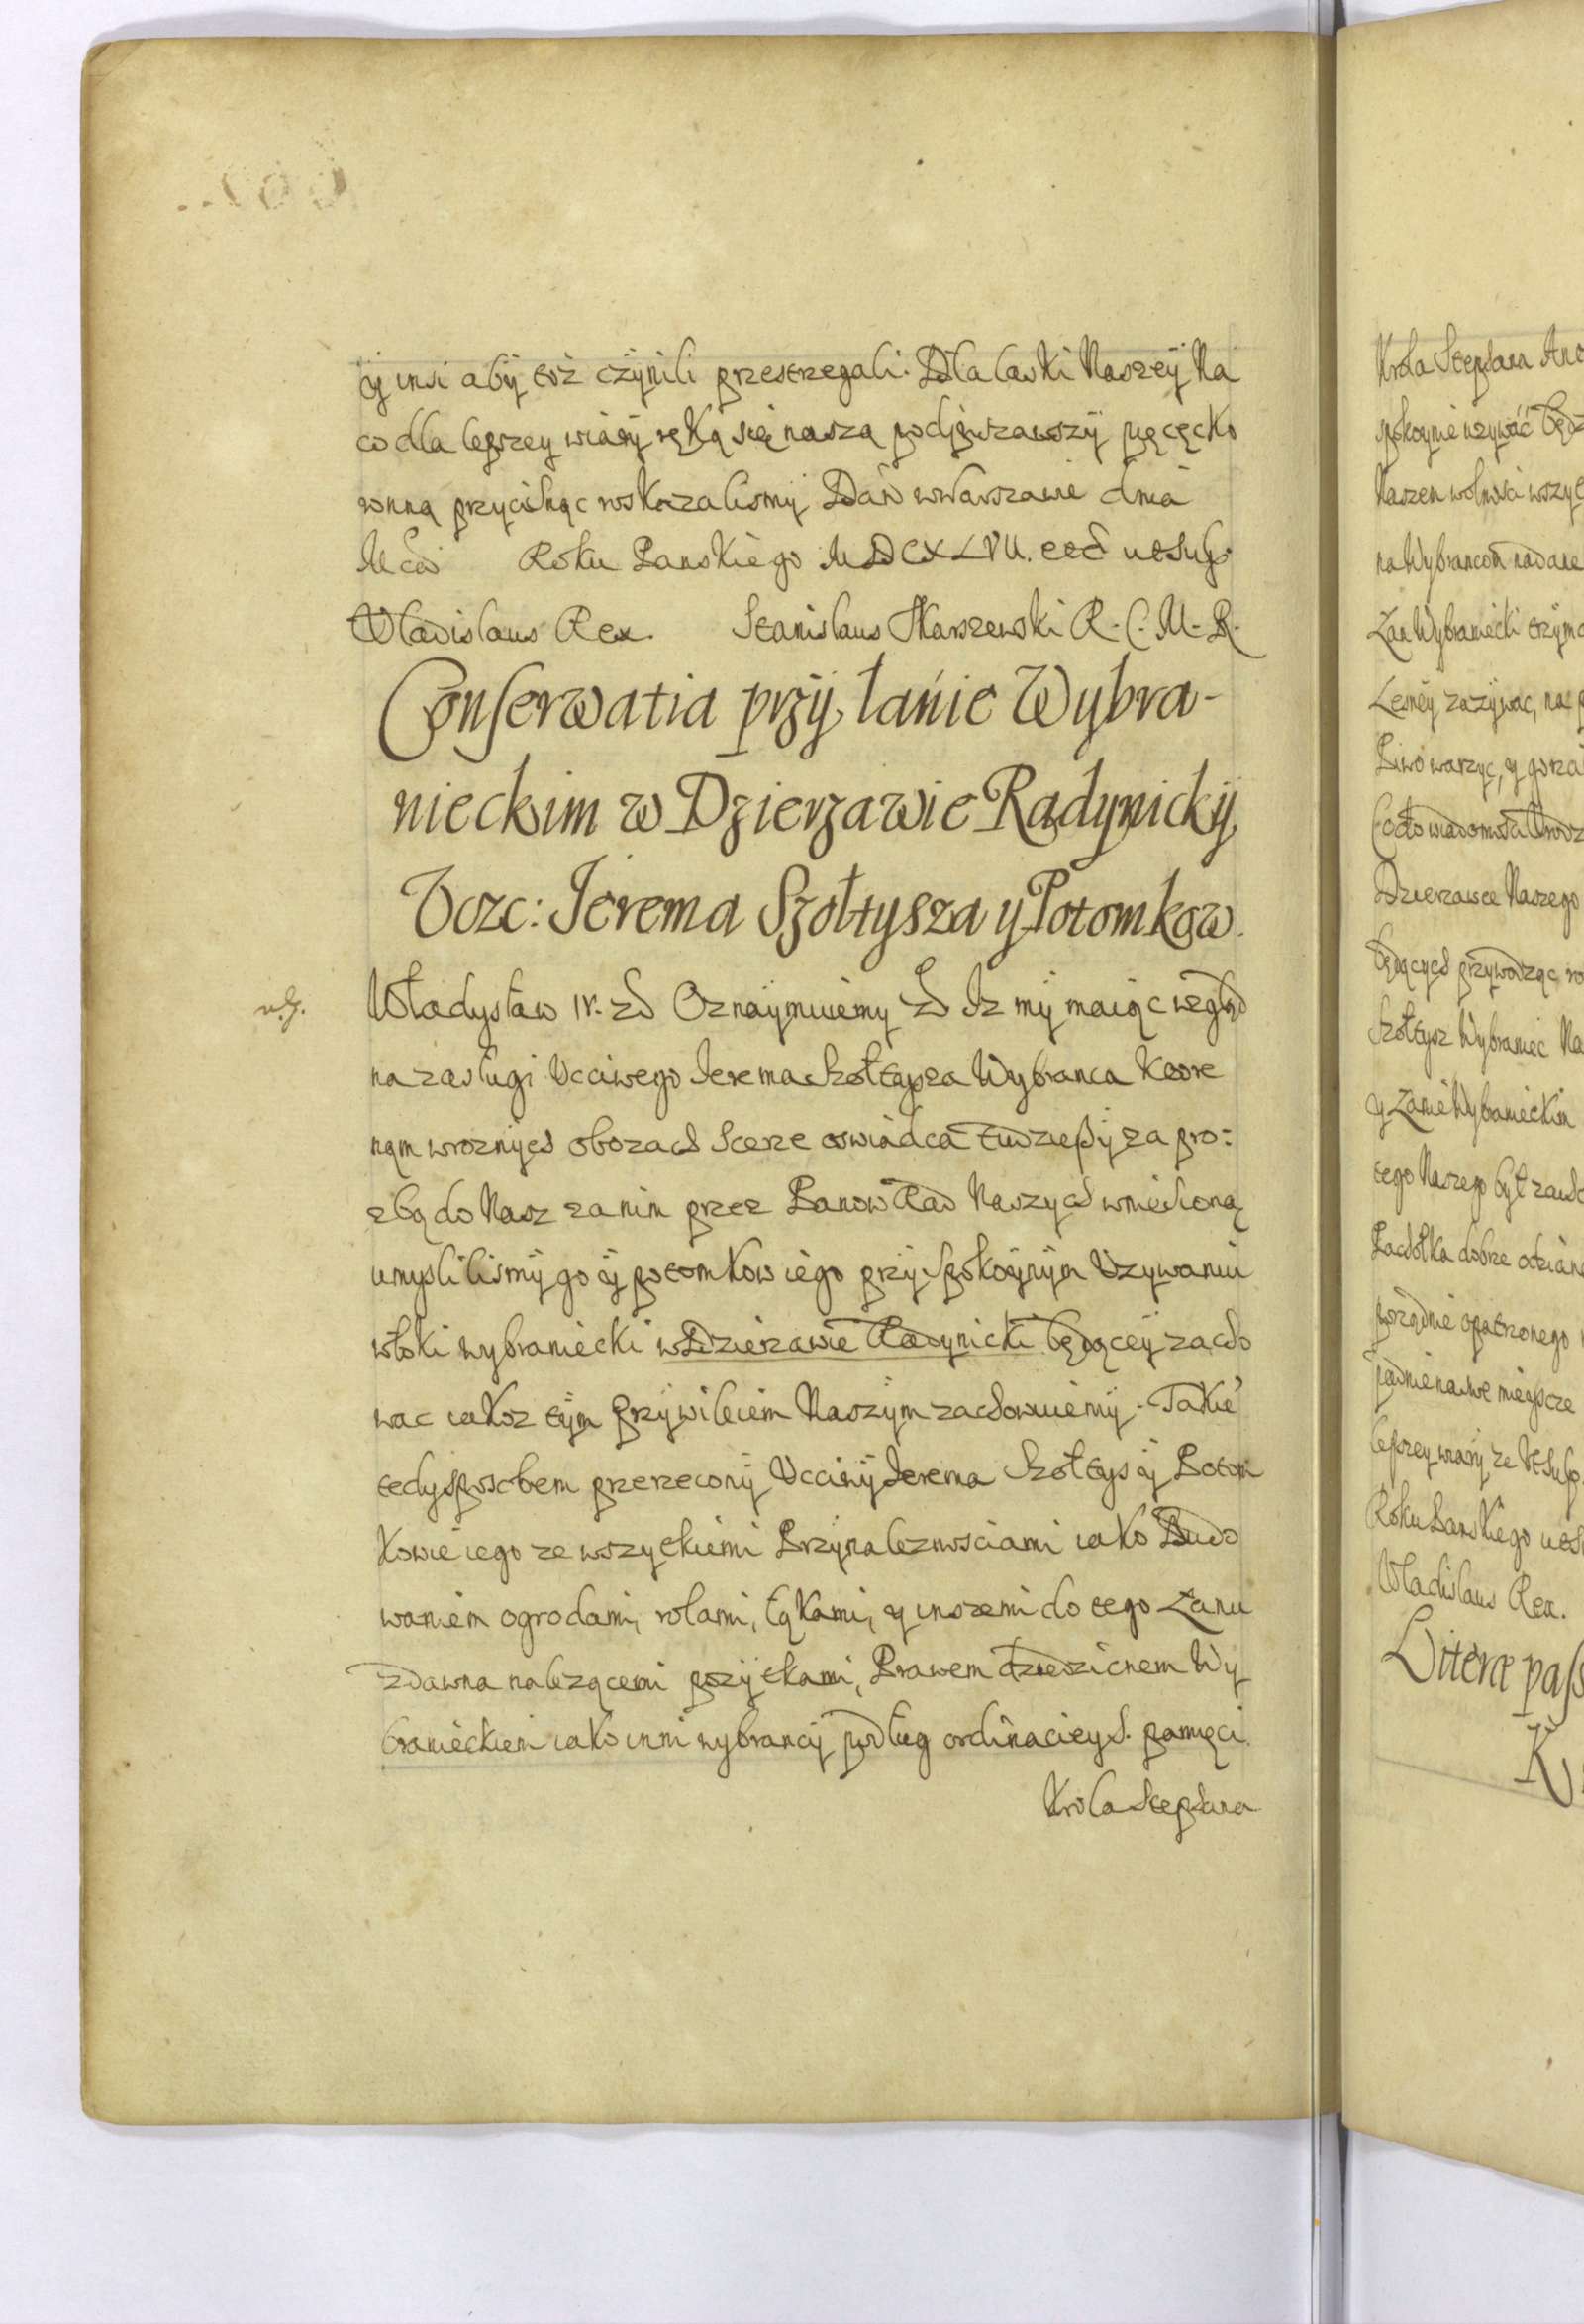 y insi aby toż czynili przestrzegali. Dla łaski Naszey Na
co dla lepszey wiary ręką się naszą podpisawszy pieczęć ko
ronną przycisnąc roskazalismy Dan w Warszawie dnia
Mca Roku Panskiego MDCXLVII. etc ut supr
Wladislaus Rex. Stanislaus Skarszewski R. C. M. R.
Conserwatia przy łanie Wybra-
nieckim w Dzierzawie Radynicky
Vczc: Jerema Szołtysza y Potomkow.
Władysław IV. Oznaymuiemy Iz my maiąc wzgląd
na zasługi Vcciwego Jerema Szołtysza Wybranca ktore
nam w roznych obozach scerze oswiadca tudziesz y za pro:
zbą do Nasz za nim przez Panow Rad Naszych wniesioną
umyslilismy go y potomkow iego przy spokoynym Vzywaniu
włoki wybraniecki w Dzierzawie Radynicki będącey zacho
wac iakosz tym Przywileiem Naszym zachowuiemy. Takie
tedy sposobem przerzecony Vcciwy Jerema Szołtys y Potom
kowie iego ze wszytkiemi Przynaleznosciami iako Budo
waniem ogrodami, rolami, łąkami, y inszemi do tego Łanu
zdawna nalezącemi pozytkami, Prawem dziedzicnem Wy
branieckiem iako inni wybrancy podług ordinaciey S. pamięci
Krola Stephana
Krola Stephana
spokoynie uzywać będz
Naszem wolnosci wszyt
na Wybrancom nadane
Łan Wybraniecki trzyma
Lesney zazywac, na
Piwo warzyc, y gorza
Co do wiadomosci Vrodz
Dzierzawce Naszego
będących przywodząc
Szołtysz Wybraniec Na
y Łanie Wybranieckim
tego Naszego był zacho
Pachołka dobrze odzian
porządnie opatrzonego
lepszey wiary ze Vt sup.
Roku Panskiego ut s
Wladislaus Rex.
Literæ pass